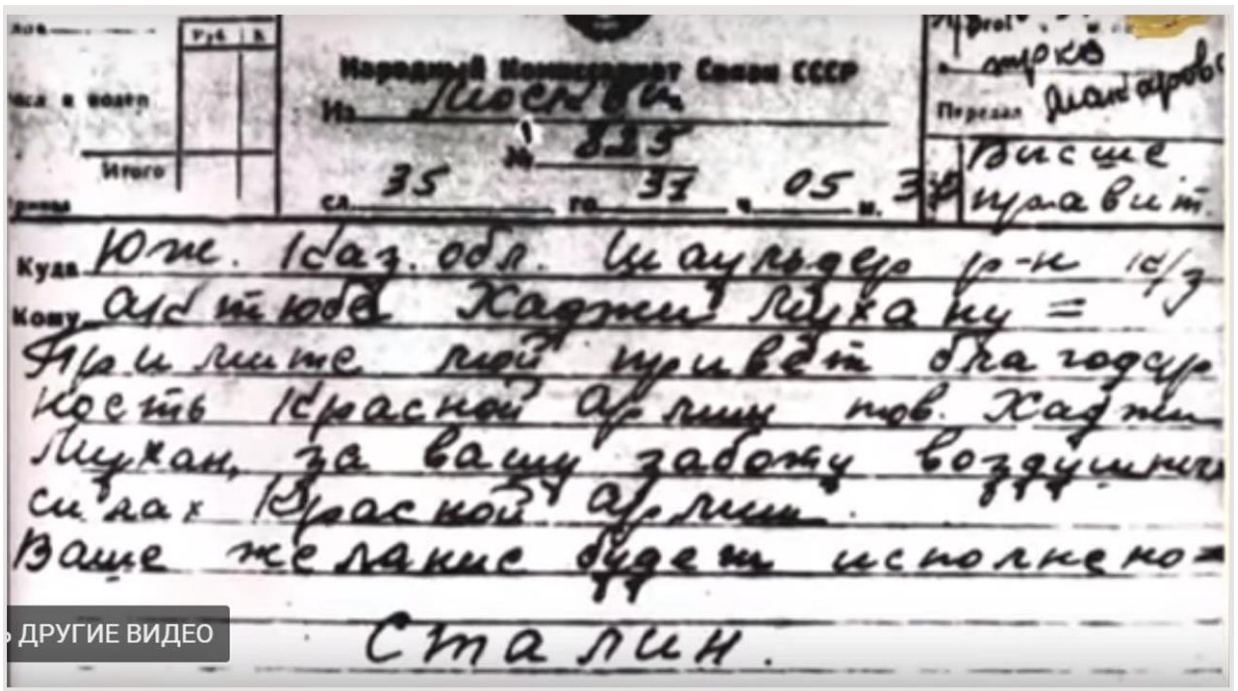 Руб К
Народный Комиссариат Связи СССР
Из Москвы
№ 825
Передал
Итого
сл. 35 го 31 ч. 05 м.
Высше
правит.
Куда Юж. Каз. обл. Шаульдер р-н к/з
Кому Актюбе Хаджи Мухану =
Примите мой привет благодар
ность Красной Армии тов. Хаджи
Мухан, за вашу заботу воздушных
силах Красной Армии.
Ваше желание будет исполнено =
Сталин.
Ь ДРУГИЕ ВИДЕО